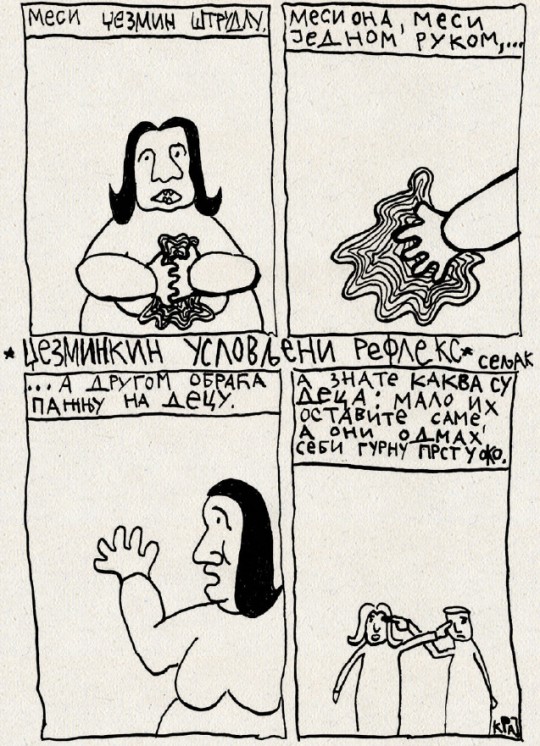 МЕСИ ЏЕЗМИН ШТРУДЛУ,
МЕСИ ОНА, МЕСИ
ЈЕДНОМ РУКОМ,...
*ЏЕЗМИНКИН УСЛОВЉЕНИ РЕФЛЕКС*
СЕЉАК
...А ДРУГОМ ОБРАЋА
ПАЖЊУ НА ДЕЦУ.
А ЗНАТЕ КАКВА СУ
ДЕЦА: МАЛО ИХ
ОСТАВИТЕ САМЕ
А ОНИ ОДМАХ
СЕБИ ГУРНУ ПРСТ У ОКО.
КРАЈ